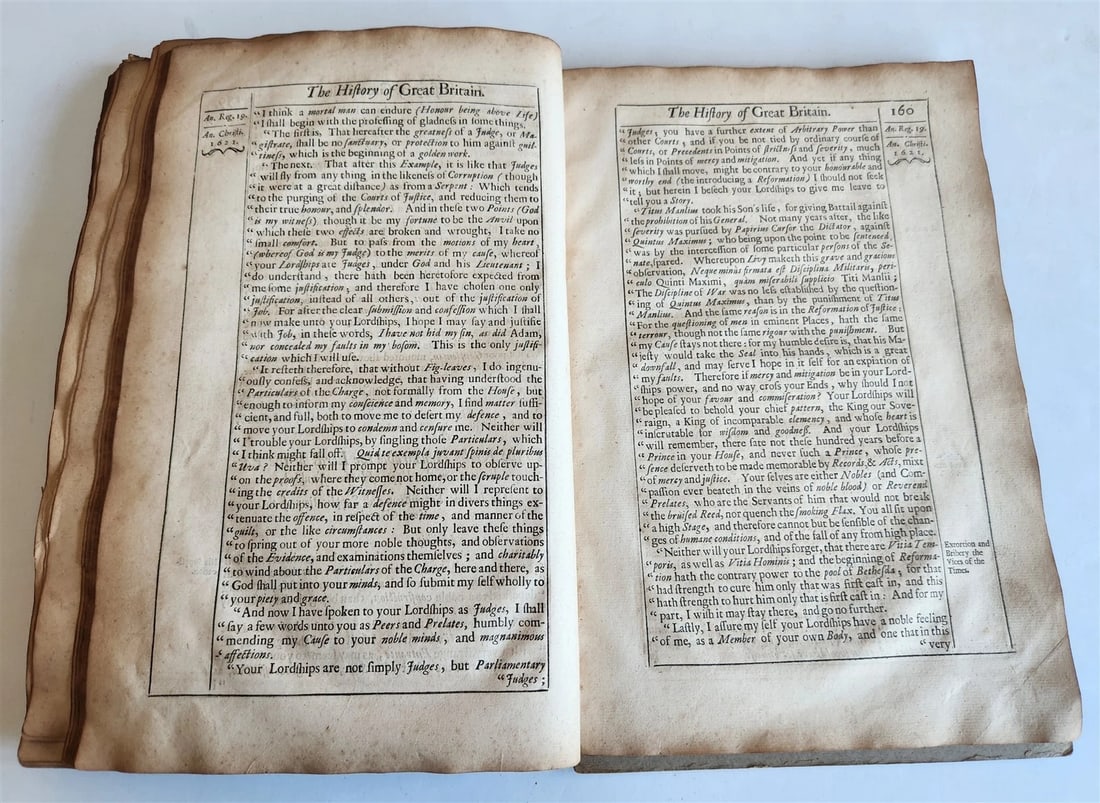 The Hiſtory of Great Britain.
An. Reg. 19.
An. Chriſti.
1621.
“I think a mortal man can endure (Honour being above Life)
“I ſhall begin with the profeſſing of gladneſs in ſome things.
“The firſt is. That hereafter the greatneſs of a Judge, or Ma-
“giſtrate, ſhall be no ſanctuary, or protection to him againſt guil-
“tineſs, which is the beginning of a golden work.
“The next. That after this Example, it is like that Judges
“will fly from any thing in the likeneſs of Corruption (though
“it were at a great diſtance) as from a Serpent: Which tends
“to the purging of the Courts of Juſtice, and reducing them to
“their true honour, and ſplendor. And in theſe two Points (God
“is my witneſs) though it be my fortune to be the Anvil upon
“which theſe two effects are broken and wrought, I take no
“ſmall comfort. But to paſs from the motions of my heart,
“(whereof God is my Judge) to the merits of my cauſe, whereof
“your Lordſhips are Judges, under God and his Lieutenant; I
“do underſtand, there hath been heretofore expected from
“me ſome juſtification, and therefore I have choſen one only
“juſtification, inſtead of all others, out of the juſtification of
“Job. For after the clear ſubmiſſion and confeſſion which I ſhall
“now make unto your Lordſhips, I hope I may ſay and juſtifie
“with Job, in theſe words, I have not hid my ſin, as did Adam,
“nor concealed my faults in my boſom. This is the only juſtifi-
“cation which I will uſe.
“It reſteth therefore, that without Fig-leaves, I do ingenu-
“ouſly confeſs, and acknowledge, that having underſtood the
“Particulars of the Charge, not formally from the Houſe, but
“enough to inform my conſcience and memory, I find matter ſuffi-
“cient, and full, both to move me to deſert my defence, and to
“move your Lordſhips to condemn and cenſure me. Neither will
“I trouble your Lordſhips, by ſingling thoſe Particulars, which
“I think might fall off. Quid te exempla juvant ſpinis de pluribus
“Uva? Neither will I prompt your Lordſhips to obſerve up-
“on the proofs, where they come not home, or the ſcruple touch-
“ing the credits of the Witneſſes. Neither will I repreſent to
“your Lordſhips, how far a defence might in divers things ex-
“tenuate the offence, in reſpect of the time, and manner of the
“guilt, or the like circumſtances: But only leave theſe things
“to ſpring out of your more noble thoughts, and obſervations
“of the Evidence, and examinations themſelves; and charitably
“to wind about the Particulars of the Charge, here and there, as
“God ſhall put into your minds, and ſo ſubmit my ſelf wholly to
“your piety and grace.
“And now I have ſpoken to your Lordſhips as Judges, I ſhall
“ſay a few words unto you as Peers and Prelates, humbly com-
“mending my Cauſe to your noble minds, and magnanimous
“affections.
“Your Lordſhips are not ſimply Judges, but Parliamentary
“Judges;
The Hiſtory of Great Britain.
160
An. Reg. 19.
An. Chriſti.
1621.
“Judges, you have a further extent of Arbitrary Power than
“other Courts, and if you be not tied by ordinary courſe of
“Courts, or Precedents in Points of ſtrictneſs and ſeverity, much
“leſs in Points of mercy and mitigation. And yet if any thing
“which I ſhall move, might be contrary to your honourable and
“worthy end (the introducing a Reformation) I ſhould not ſeek
“it; but herein I beſeech your Lordſhips to give me leave to
“tell you a Story.
“Titus Manlius took his Son's life, for giving Battail againſt
“the prohibition of his General. Not many years after, the like
“ſeverity was purſued by Papirius Curſor the Dictator, againſt
“Quintus Maximus; who being upon the point to be ſentenced,
“was by the interceſſion of ſome particular perſons of the Se-
“nate, ſpared. Whereupon Livy maketh this grave and gracious
“obſervation, Neque minus firmata eſt Diſciplina Militaris, peri-
“culo Quinti Maximi, quam miſerabili ſupplicio Titi Manlii;
“The Diſcipline of War was no leſs eſtabliſhed by the queſtion-
“ing of Quintus Maximus, than by the puniſhment of Titus
“Manlius. And the ſame reaſon is in the Reformation of Juſtice:
“For the queſtioning of men in eminent Places, hath the ſame
“terrour, though not the ſame rigour with the puniſhment. But
“my Cauſe ſtays not there: for my humble deſire is, that his Ma-
“jeſty would take the Seal into his hands, which is a great
“downfall, and may ſerve I hope in it ſelf for an expiation of
“my faults. Therefore if mercy and mitigation be in your Lord-
“ſhips power, and no way croſs your Ends, why ſhould I not
“hope of your favour and commiſeration? Your Lordſhips will
“be pleaſed to behold your chief pattern, the King our Sove-
“raign, a King of incomparable clemency, and whoſe heart is
“inſcrutable for wiſdom and goodneſs. And your Lordſhips
“will remember, there ſate not theſe hundred years before a
“Prince in your Houſe, and never ſuch a Prince, whoſe pre-
“ſence deſerveth to be made memorable by Records, & Acts, mixt
“of mercy and juſtice. Your ſelves are either Nobles (and Com-
“paſſion ever beateth in the veins of noble blood) or Reverend
“Prelates, who are the Servants of him that would not break
“the bruiſed Reed, nor quench the ſmoking Flax. You all ſit upon
“a high Stage, and therefore cannot but be ſenſible of the chan-
“ges of humane conditions, and of the fall of any from high place.
“Neither will your Lordſhips forget, that there are Vitia Tem-
“poris, as well as Vitia Hominis; and the beginning of Reforma-
“tion hath the contrary power to the pool of Betheſda, for that
“had ſtrength to cure him only that was firſt caſt in, and this
“hath ſtrength to hurt him only that is firſt caſt in: And for my
“part, I wiſh it may ſtay there, and go no further.
Extortion and
Bribery the
Vices of the
Times.
“Laſtly, I aſſure my ſelf your Lordſhips have a noble feeling
“of me, as a Member of your own Body, and one that in this
“very